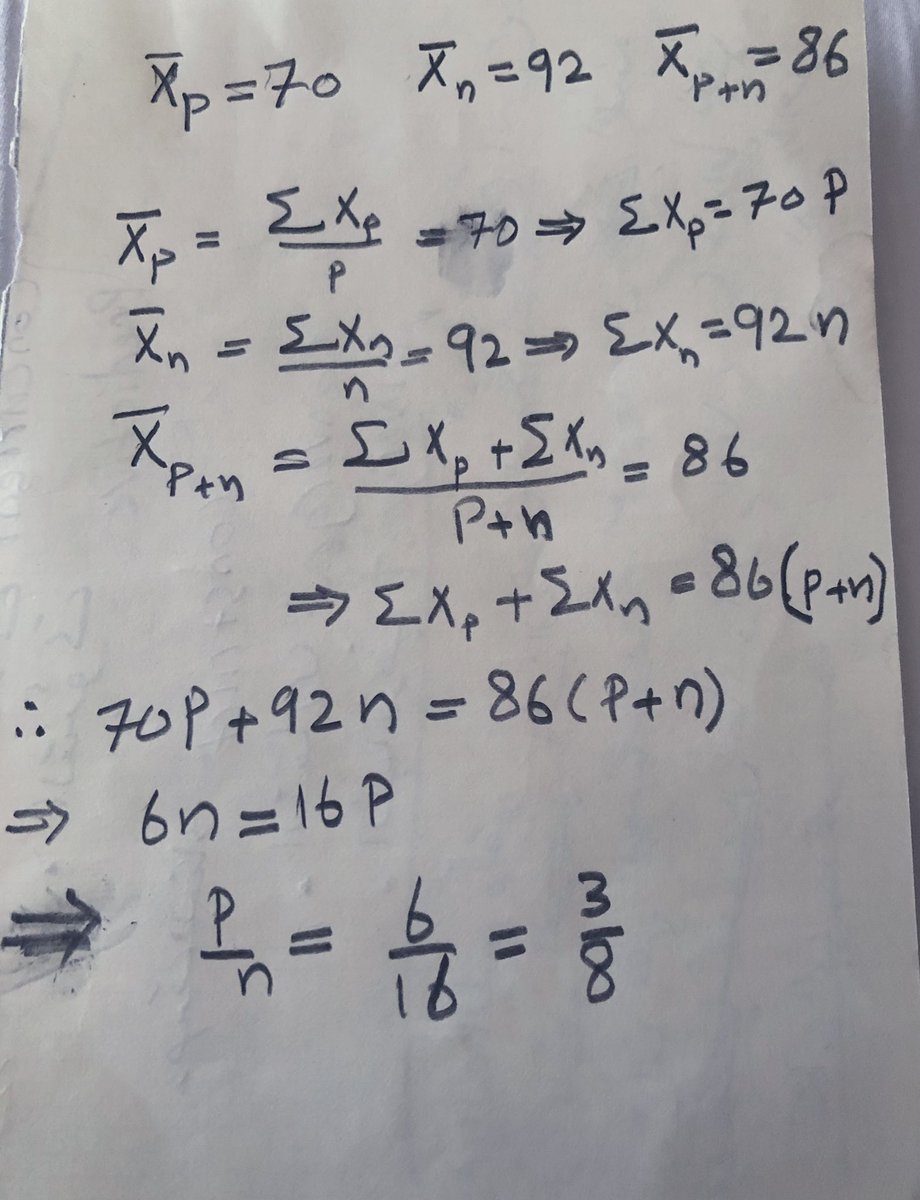 X̄ₚ = 70 X̄ₙ = 92 X̄ₚ₊ₙ = 86
X̄ₚ = ΣXₚ/p = 70 ⇒ ΣXₚ = 70P
X̄ₙ = ΣXₙ/n = 92 ⇒ ΣXₙ = 92n
X̄ₚ₊ₙ = (ΣXₚ + ΣXₙ)/P+n = 86
⇒ ΣXₚ + ΣXₙ = 86(p+n)
∴ 70P + 92n = 86(P+n)
⇒ 6n = 16P
⇒ P/n = 6/16 = 3/8